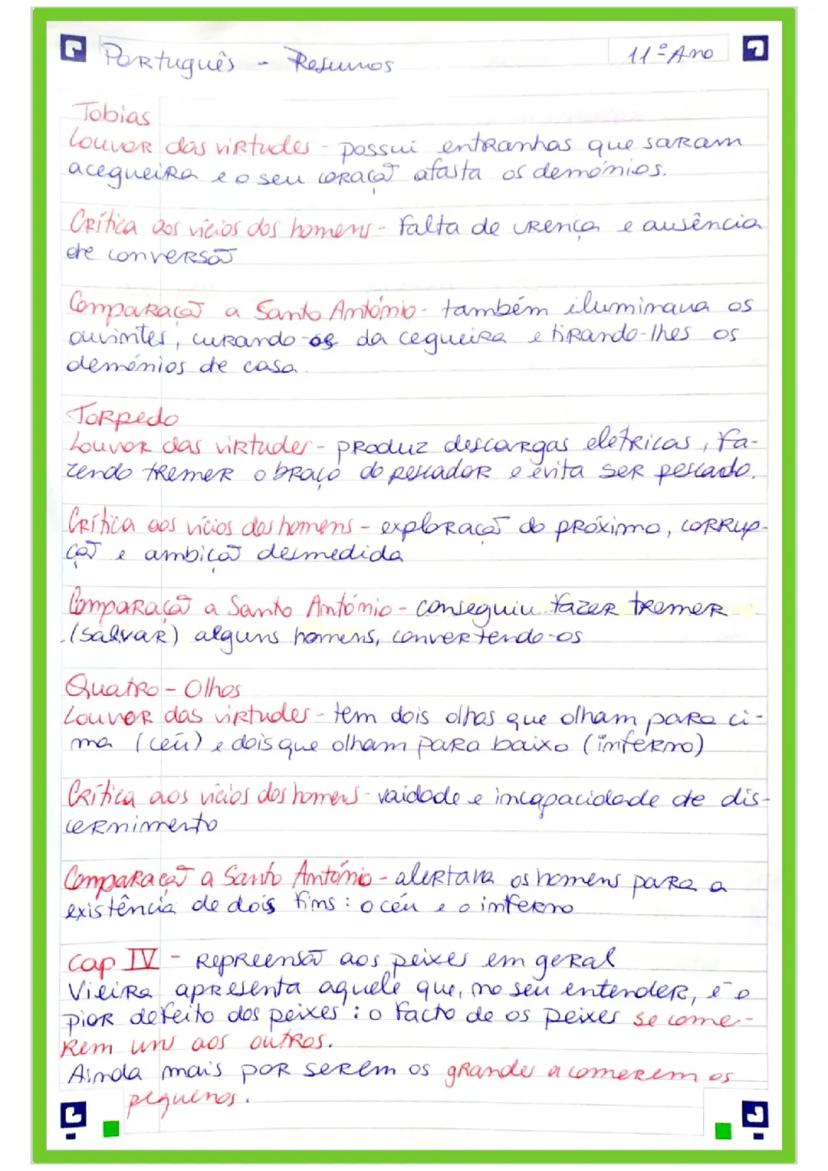 Português - Resumos
11º Ano
Tobias
Louvor das virtudes - possui entranhas que saram
a cegueira e o seu coração afasta os demónios.
Crítica aos vícios dos homens - Falta de crença e ausência
de conversão
Comparação a Santo António - também iluminava os
ouvintes, curando-os da cegueira e tirando-lhes os
demónios de casa.
Torpedo
Louvor das virtudes - produz descargas elétricas, fa-
zendo tremer o braço do pescador e evita ser pescado.
Crítica aos vícios dos homens - exploração do próximo, corrup-
ção e ambição desmedida
Comparação a Santo António - conseguiu fazer tremer
(salvar) alguns homens, convertendo-os
Quatro-Olhos
Louvor das virtudes - tem dois olhos que olham para ci-
ma (céu) e dois que olham para baixo (inferno)
Crítica aos vícios dos homens - vaidade e incapacidade de dis-
cernimento
Comparação a Santo António - alertava os homens para a
existência de dois fins: o céu e o inferno
Cap IV - Repreensão aos peixes em geral
Vieira apresenta aquele que, no seu entender, é o
pior defeito dos peixes: o facto de os peixes se come-
rem uns aos outros.
Ainda mais por serem os grandes a comerem os
pequenos.